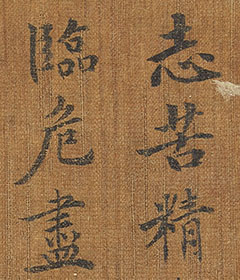 志苦精
臨危盡